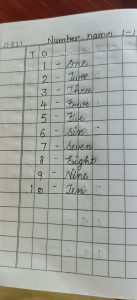 Number names 1-1
T O
1 - One
2 - Two
3 - Three
4 - Four
5 - Five
6 - Six
7 - Seven
8 - Eight
9 - Nine
1 0 - Ten